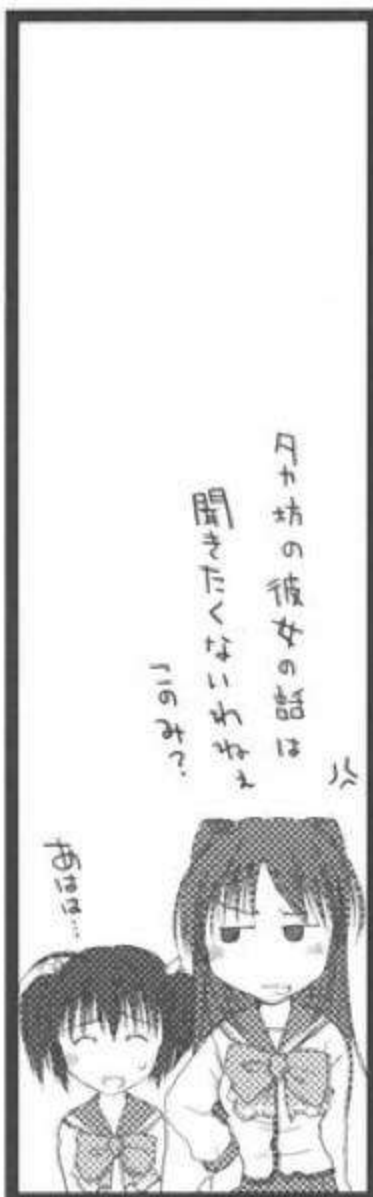 タカ坊の彼女の話は
聞きたくないわねぇ
このみ？
あはは…